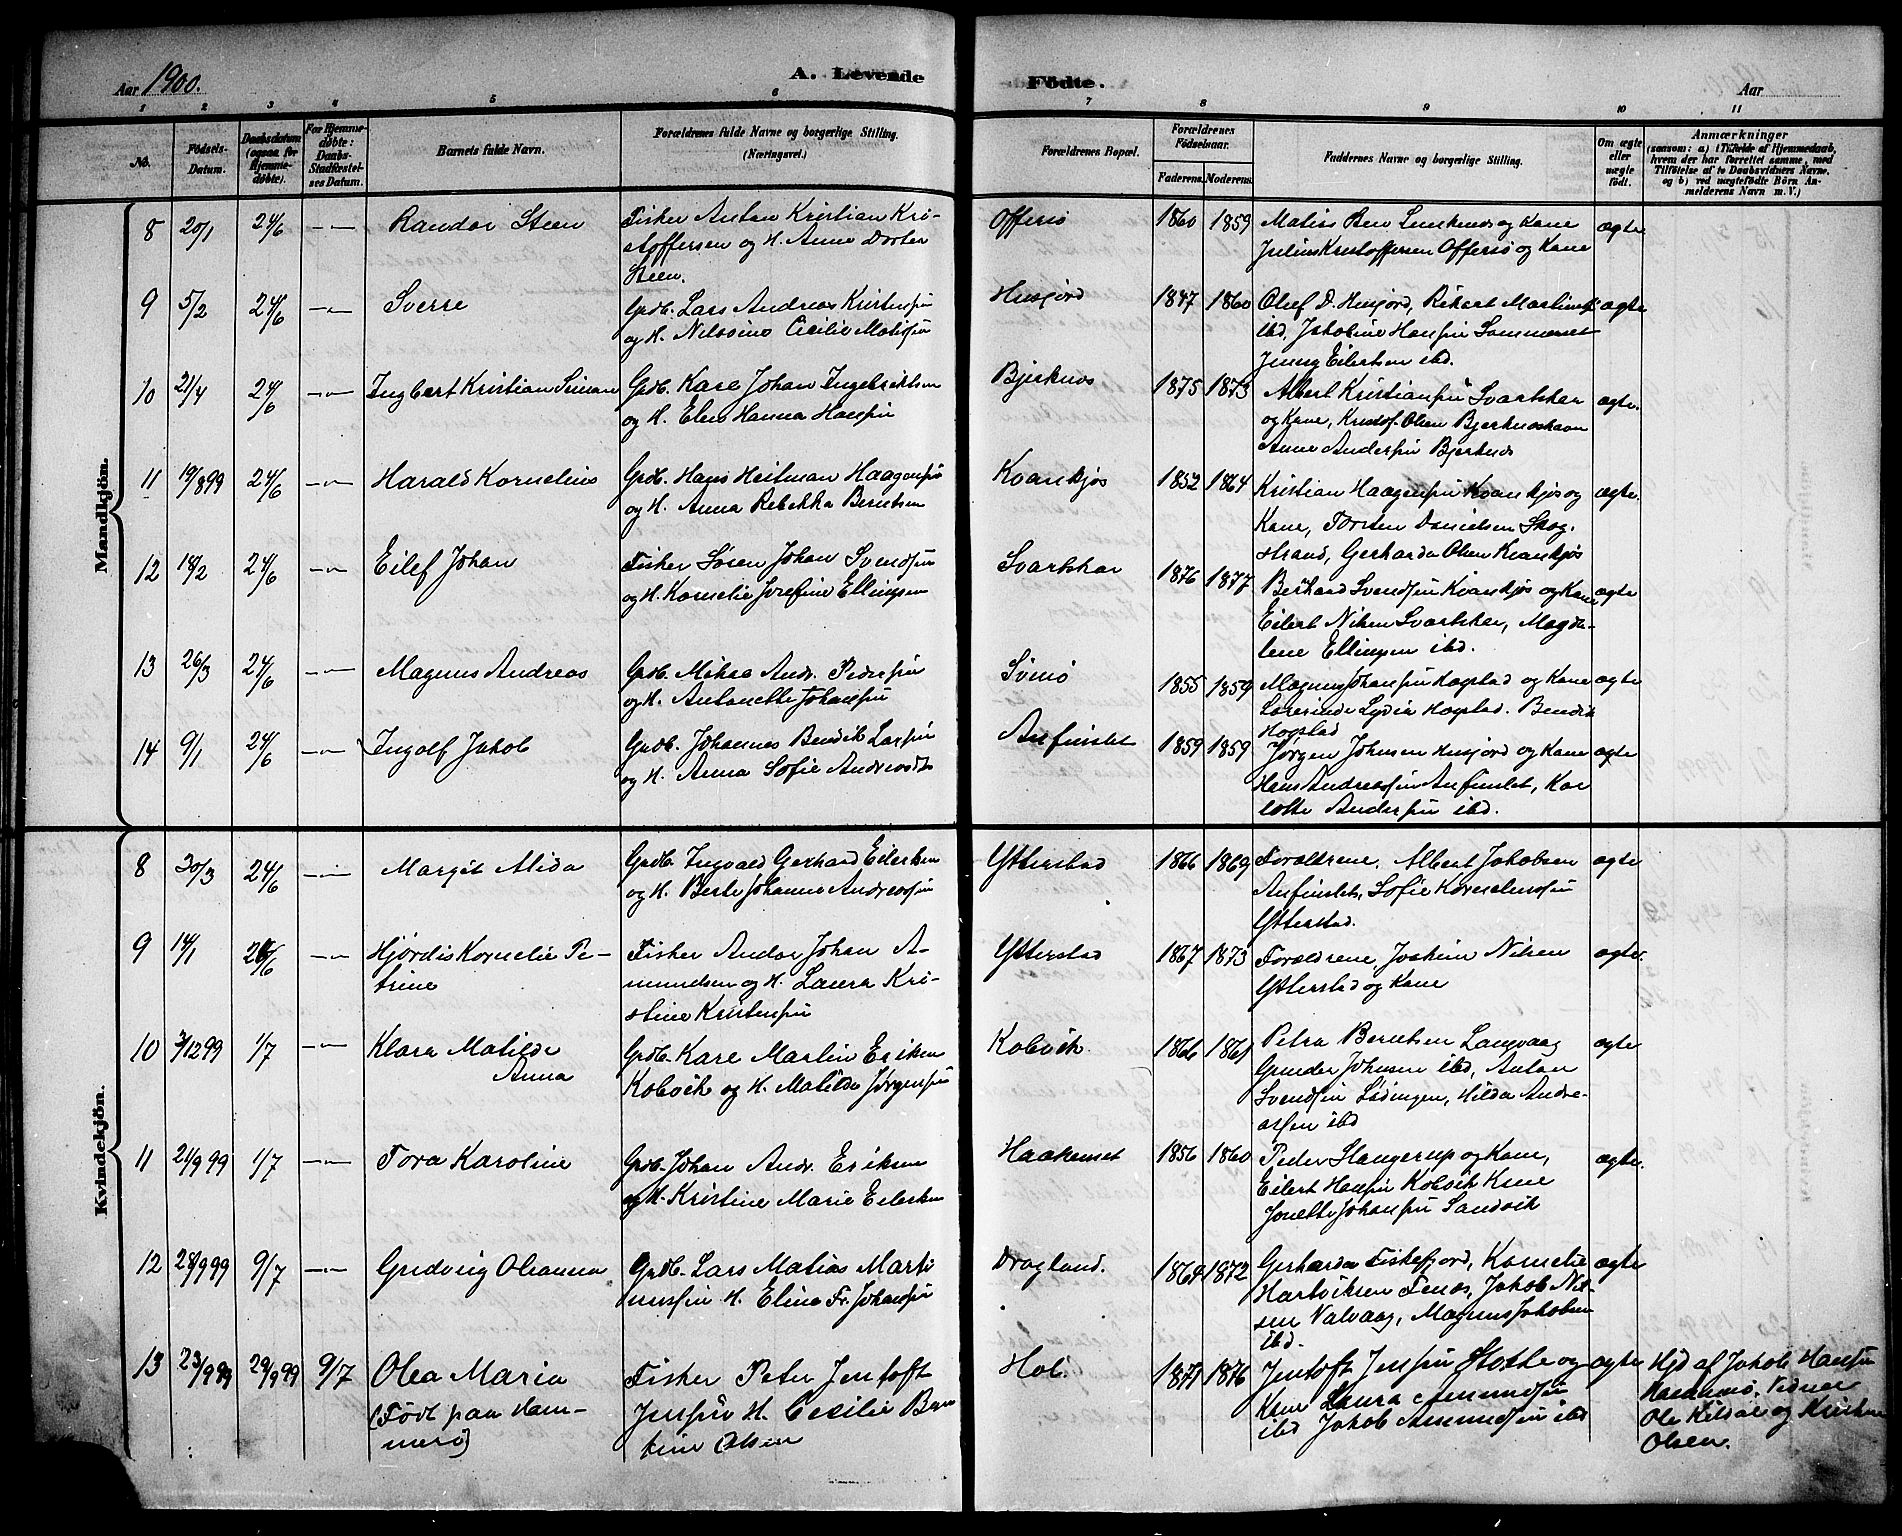 Aar 1900.
A. Levende
Fødte.
Aar
1 2 3 4 5 6 7 8 9 10 11
No.
Fødsels-
Datum.
Daabsdatum
(ogsaa for
Hjemme-
døbte).
For Hjemme-
døbte:
Daabs-
Stadfæstel-
ses Datum.
Barnets fulde Navn.
Forældrenes fulde Navne og borgerlige Stilling.
(Næringsvei.)
Forældrenes Bopæl.
Forældrenes
Fødselsaar.
Faderens. Moderens.
Faddernes Navne og borgerlige Stilling.
Om ægte
eller
uægte
født.
Anmærkninger
(saasom: a) i Tilfælde af Hjemmedaab,
hvem der har forrettet samme, med
Tilføielse af to Daabsvidners Navne.
og b) ved uægtefødte Børn An-
melderens Navn m. V.)
Mandkjön.
8 20/1 24/6 —"— Randor Steen
Fisker Anton Kristian Kri-
stoffersen og H. Anne Dorter
Steen.
Offersø 1860 1859
og Kane
Julius Kristoffersen Offersø og Kane
ægte
9 5/2 24/6 —"— Sverre
Grdb. Lars Andreas Kristensen
og H. Nilssine Cecilie Matisen
Husjord 1847 1860
Olef D. Husjord, Rikart Martinus
ibd, Jakobine Hansen
Jenny Eilertsen ibd.
ægte
10 21/4 24/6 —"— Ingbert Kristian Simon
Grdb. Kare Johan Ingebriktsen
og H. Elen Hanna Hansen
Bjerknes 1875 1873
Albert Kristiansen Svartskar
og Kane, Kristof. Olsen
Anne Andersen Bjerknes
ægte.
11 19/8 99 24/6 —"— Harald Kornelius
Grdb. Hans Heitman Haagensen
og H. Anna Rebekka Berntsen
Kvankjøs 1852 1864
Kristian Haagensen Kvankjøs og
Kane, Torsten Danielsen Skog-
strand, Gerharda Olsen Kvankjøs
ægte.
12 18/2 24/6 —"— Eilef Johan
Fisker Sören Johan Svendsen
og H. Kornelie Josefine Ellingsen
Svartskar 1876 1877
Berhard Svendsen Kvankjøs og Kane
Eilert Nilsen Svartskar, Magda-
lene Ellingsen ibd.
ægte
13 26/3 24/6 —"— Magnus Andreas
Grdb. Mikae Andr. Pedersen
og H. Antonette Johansen
Svinø 1855 1859
Magnus Johansen Hogstad og Kane
Lydia Hogstad. Bendik
Hogstad
ægte
14 9/1 24/6 —"— Ingolf Jakob
Grdb. Johannes Bendik Larsen
og H. Anna Sofie Andreasdt.
Anfinslet 1859 1859
Jørgen Johnsen Husjord og Kane
Hans Andreassen Anfinslet, Kar
lotte Andersen ibd.
ægte
Kvindekjön.
8 30/3 24/6 —"— Margit Alida
Grdb. Ingvald Gerhard Eilertsen
og H. Berte Johanne Andreassen
Ytterstad 1866 1869
Forældrene, Albert Jakobsen
Anfinslet, Sofie Korneliussen
Ytterstad.
ægte
9 14/1 24/6 —"— Hjørdis Kornelie Pe-
trine
Fisker Andor Johan A-
mundsen og H. Laura Kri-
stine Kristensen
Ytterstad 1867 1873
Forældrene, Joakim Nilsen
Ytterstad og Kane
ægte.
10 3/12 99 1/7 —"— Klara Matilde
Anna
Grdb. Kare Martin Eriksen
Kobvik og H. Matilde Jørgensen
Kobvik 1866 1861
Petra Berntsen Langvaag
Gunder Johnsen ibd, Anton
Svendsen Lødingen, Hilda Andre-
assen ibd
ægte
11 21/9 99 1/7 —"— Tora Karoline
Grdb. Johan Andr. Eriksen
og H. Kristine Marie Eilertsen
Haakenset 1856 1860
Peder Slangerup og Kane,
Eilert Hansen Kobvik Kone
Jonette Johansen Sandvik
ægte.
12 28/9 99 9/7 —"— Gudvig Oleanna
Grdb. Lars Matias Marti
nussen H. Eline Fr. Johansen
Dragland. 1864 1872
Gerharda Fiskefjord, Kornelie
Hartviksen Tenes, Jakob Nil-
sen Valvaag, Magnus Jakobsen
ibd.
ægte
13 23/9 99 29/9 99 9/7 Olea Maria
(Født paa Ham-
merø)
Fisker Peter Jentoft
Jensen H. Cecilie Bern
tine Olsen
Hol. 1871 1876
Jentoft Jensen og
Kone Laura Amundsen
ibd Jakob Amundsen ibd
ægte
Hjd af Jakob Hansen
Vidner
Ole Kildal og Kristine
Olsen.